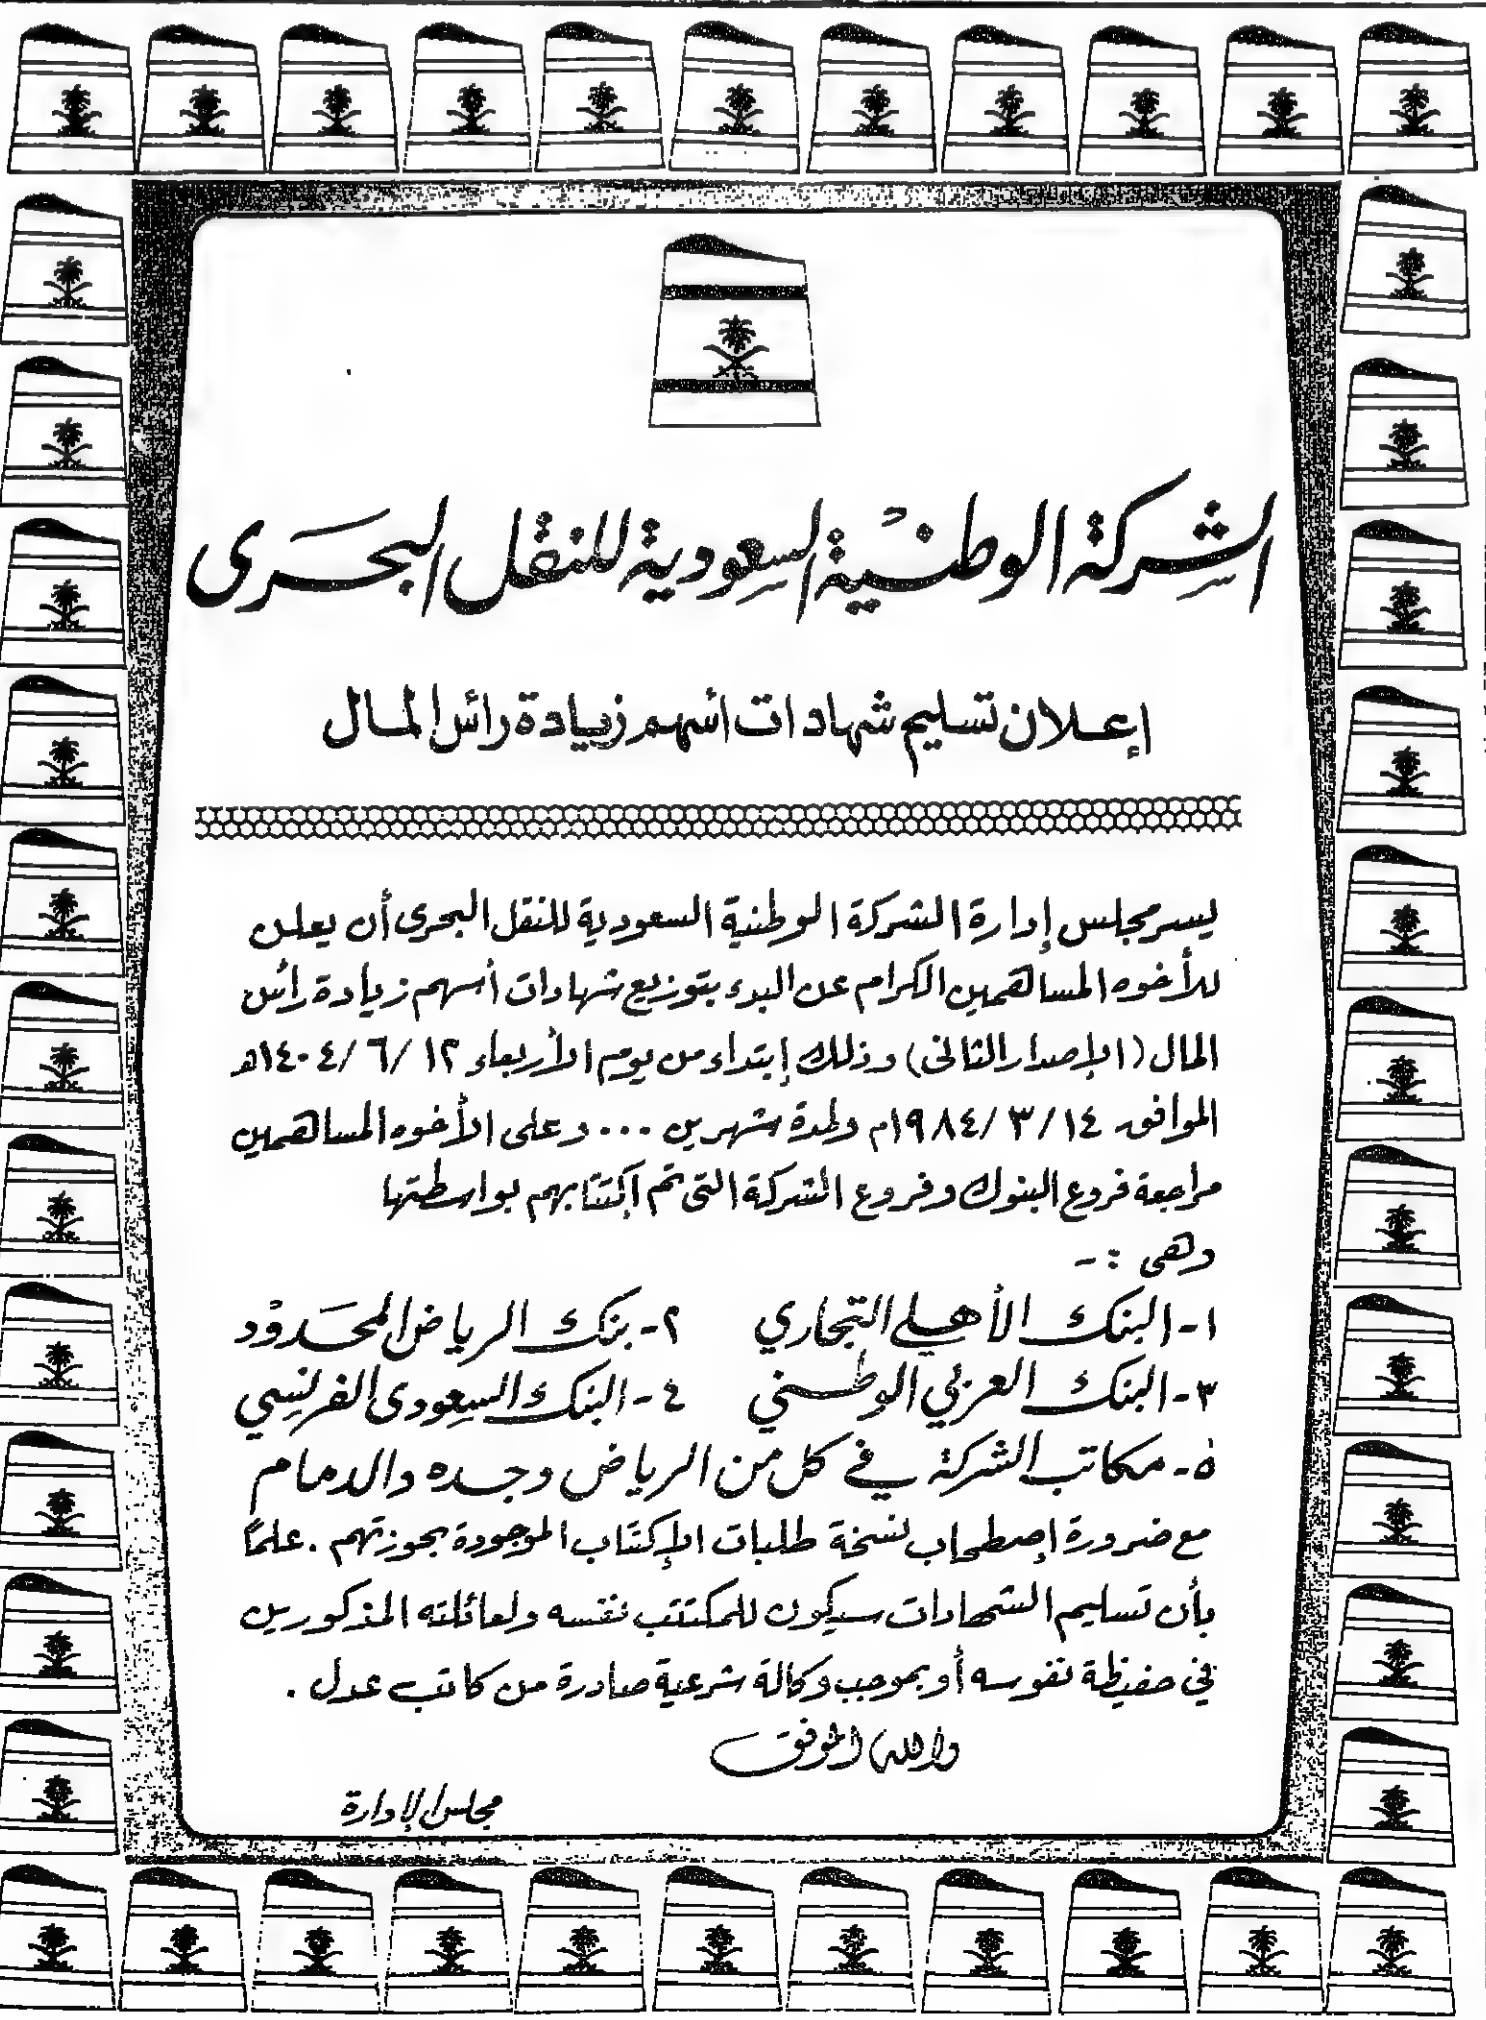 الشركة الوطنية السعودية للنقل البحرى
إعلان تسليم شهادات أسهم زيادة رأس المال
يسر مجلس إدارة الشركة الوطنية السعودية للنقل البحرى أن يعلن
للأخوه المساهمين الكرام عن البدء بتوزيع شهادات أسهم زيادة رأس
المال (الإصدار الثانى) وذلك إبتداء من يوم الأربعاء ١٢ /٦ /١٤٠٤هـ
الموافق ١٤ /٣ /١٩٨٤م ولمدة شهرين ... وعلى الأخوه المساهمين
مراجعة فروع البنوك وفروع الشركة التى تم اكتتابهم بواسطتها
وهى :-
١- البنك الأهلي التجاري ٢- بنك الرياض المحدود
٣- البنك العربي الوطني ٤- البنك السعودى الفرنسي
٥- مكاتب الشركة في كل من الرياض وجده والدمام
مع ضرورة إصطحاب نسخة طلبات الإكتتاب الموجودة بحوزتهم . علمًا
بأن تسليم الشهادات سيكون للمكتتب نفسه ولعائلته المذكورين
في حفيظة نفوسه أو بموجب وكالة شرعية صادرة من كاتب عدل .
والله الموفق
مجلس الإدارة